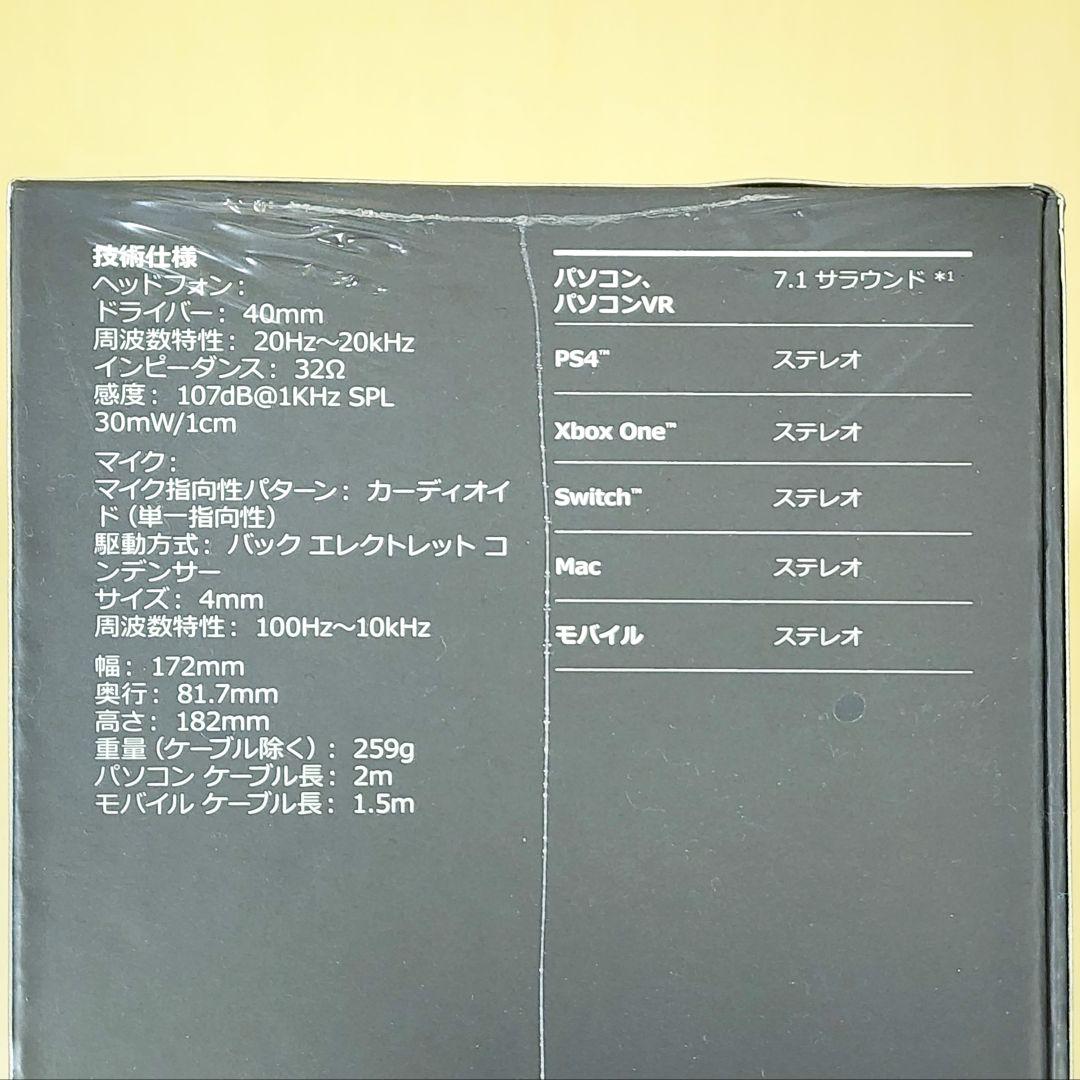 技術仕様
ヘッドフォン：
ドライバー： 40mm
周波数特性： 20Hz～20kHz
インピーダンス： 32Ω
感度： 107dB@1KHz SPL
30mW/1cm
マイク：
マイク指向性パターン： カーディオイ
ド（単一指向性）
駆動方式： バック エレクトレット コ
ンデンサー
サイズ： 4mm
周波数特性： 100Hz～10kHz
幅： 172mm
奥行： 81.7mm
高さ： 182mm
重量（ケーブル除く）： 259g
パソコン ケーブル長： 2m
モバイル ケーブル長： 1.5m
パソコン、 7.1 サラウンド *1
パソコンVR
PS4™ ステレオ
Xbox One™ ステレオ
Switch™ ステレオ
Mac ステレオ
モバイル ステレオ